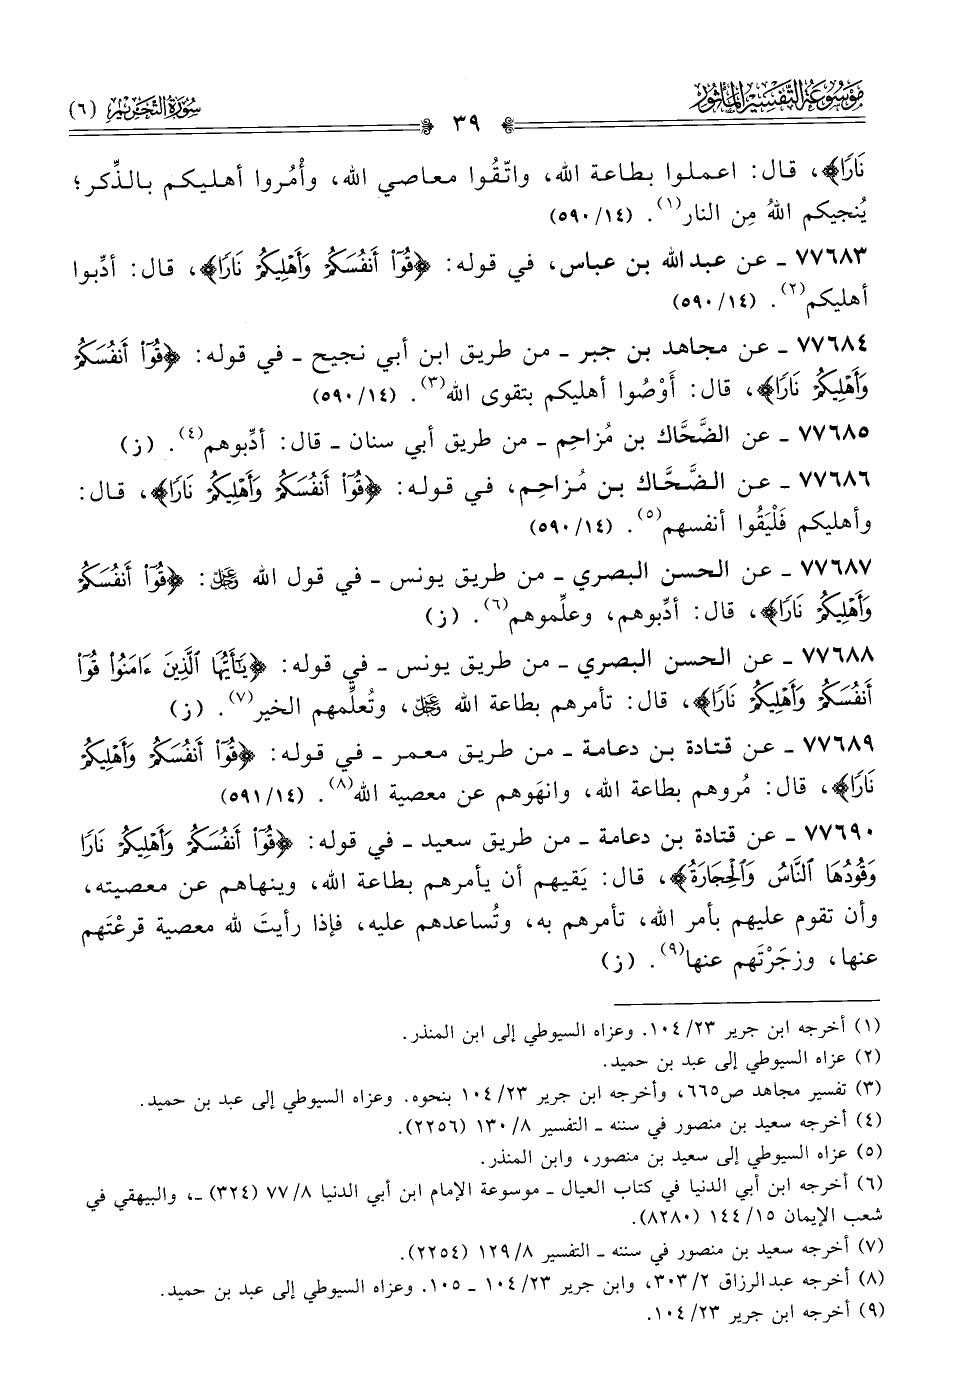 مَوْسُوعَةُ التَّفْسِيرِ المَأْثُورِ
سُورَةُ التَّحْرِيمِ (٦)
٣٩
نَارًا﴾، قال: اعملوا بطاعة الله، واتّقُوا معاصي الله، وأْمُروا أهليكم بالذِّكر؛
يُنجيكم اللهُ مِن النار(١). (١٤/ ٥٩٠)
٧٧٦٨٣ ـ عن عبد الله بن عباس، في قوله: ﴿قُوٓا۟ أَنفُسَكُمْ وَأَهْلِيكُمْ نَارًا﴾، قال: أدِّبوا
أهليكم(٢). (١٤/ ٥٩٠)
٧٧٦٨٤ ـ عن مجاهد بن جبر ـ من طريق ابن أبي نجيح ـ في قوله: ﴿قُوٓا۟ أَنفُسَكُمْ
وَأَهْلِيكُمْ نَارًا﴾، قال: أَوْصُوا أهليكم بتقوى الله(٣). (١٤/ ٥٩٠)
٧٧٦٨٥ ـ عن الضَّحَّاك بن مُزاحِم ـ من طريق أبي سنان ـ قال: أدِّبوهم(٤). (ز)
٧٧٦٨٦ ـ عن الضَّحَّاك بن مُزاحِم، في قوله: ﴿قُوٓا۟ أَنفُسَكُمْ وَأَهْلِيكُمْ نَارًا﴾، قال:
وأهليكم فَلْيَقُوا أنفسهم(٥). (١٤/ ٥٩٠)
٧٧٦٨٧ ـ عن الحسن البصري ـ من طريق يونس ـ في قول الله ﷿: ﴿قُوٓا۟ أَنفُسَكُمْ
وَأَهْلِيكُمْ نَارًا﴾، قال: أدِّبوهم، وعلِّموهم(٦). (ز)
٧٧٦٨٨ ـ عن الحسن البصري ـ من طريق يونس ـ في قوله: ﴿يَـٰٓأَيُّهَا ٱلَّذِينَ ءَامَنُوا۟ قُوٓا۟
أَنفُسَكُمْ وَأَهْلِيكُمْ نَارًا﴾، قال: تأمرهم بطاعة الله ﷿، وتُعلِّمهم الخير(٧). (ز)
٧٧٦٨٩ ـ عن قتادة بن دعامة ـ من طريق معمر ـ في قوله: ﴿قُوٓا۟ أَنفُسَكُمْ وَأَهْلِيكُمْ
نَارًا﴾، قال: مُروهم بطاعة الله، وانهَوهم عن معصية الله(٨). (١٤/ ٥٩١)
٧٧٦٩٠ ـ عن قتادة بن دعامة ـ من طريق سعيد ـ في قوله: ﴿قُوٓا۟ أَنفُسَكُمْ وَأَهْلِيكُمْ نَارًا
وَقُودُهَا ٱلنَّاسُ وَٱلْحِجَارَةُ﴾، قال: يَقيهم أن يأمرهم بطاعة الله، وينهاهم عن معصيته،
وأن تقوم عليهم بأمر الله، تأمرهم به، وتُساعدهم عليه، فإذا رأيتَ لله معصية قرعْتَهم
عنها، وزجَرْتَهم عنها(٩). (ز)
(١) أخرجه ابن جرير ٢٣/ ١٠٤. وعزاه السيوطي إلى ابن المنذر.
(٢) عزاه السيوطي إلى عبد بن حميد.
(٣) تفسير مجاهد ص٦٦٥، وأخرجه ابن جرير ٢٣/ ١٠٤ بنحوه. وعزاه السيوطي إلى عبد بن حميد.
(٤) أخرجه سعيد بن منصور في سننه ـ التفسير ٨/ ١٣٠ (٢٢٥٦).
(٥) عزاه السيوطي إلى سعيد بن منصور، وابن المنذر.
(٦) أخرجه ابن أبي الدنيا في كتاب العيال ـ موسوعة الإمام ابن أبي الدنيا ٨/ ٧٧ (٣٢٤) ـ، والبيهقي في
شعب الإيمان ١٥/ ١٤٤ (٨٢٨٠).
(٧) أخرجه سعيد بن منصور في سننه ـ التفسير ٨/ ١٢٩ (٢٢٥٤).
(٨) أخرجه عبد الرزاق ٢/ ٣٠٣، وابن جرير ٢٣/ ١٠٤ ـ ١٠٥. وعزاه السيوطي إلى عبد بن حميد.
(٩) أخرجه ابن جرير ٢٣/ ١٠٤.